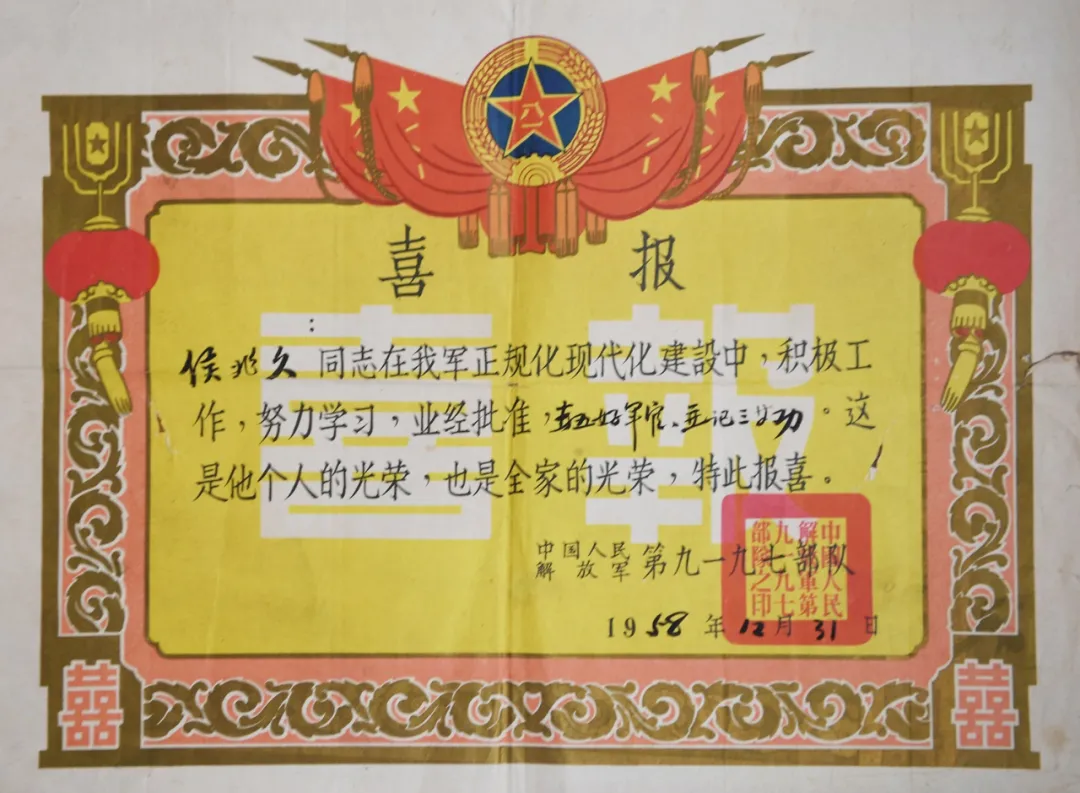 八一
喜报
喜報
:
侯兆久 同志在我军正规化现代化建設中，积极工
作，努力学习，业经批准，五好军官、並记三等功。这
是他个人的光荣，也是全家的光荣，特此报喜。
中国人民
解放军 第九一九七部队
中國人民
解放軍第
九一九七
部隊之印
1958年12月31日
囍
囍